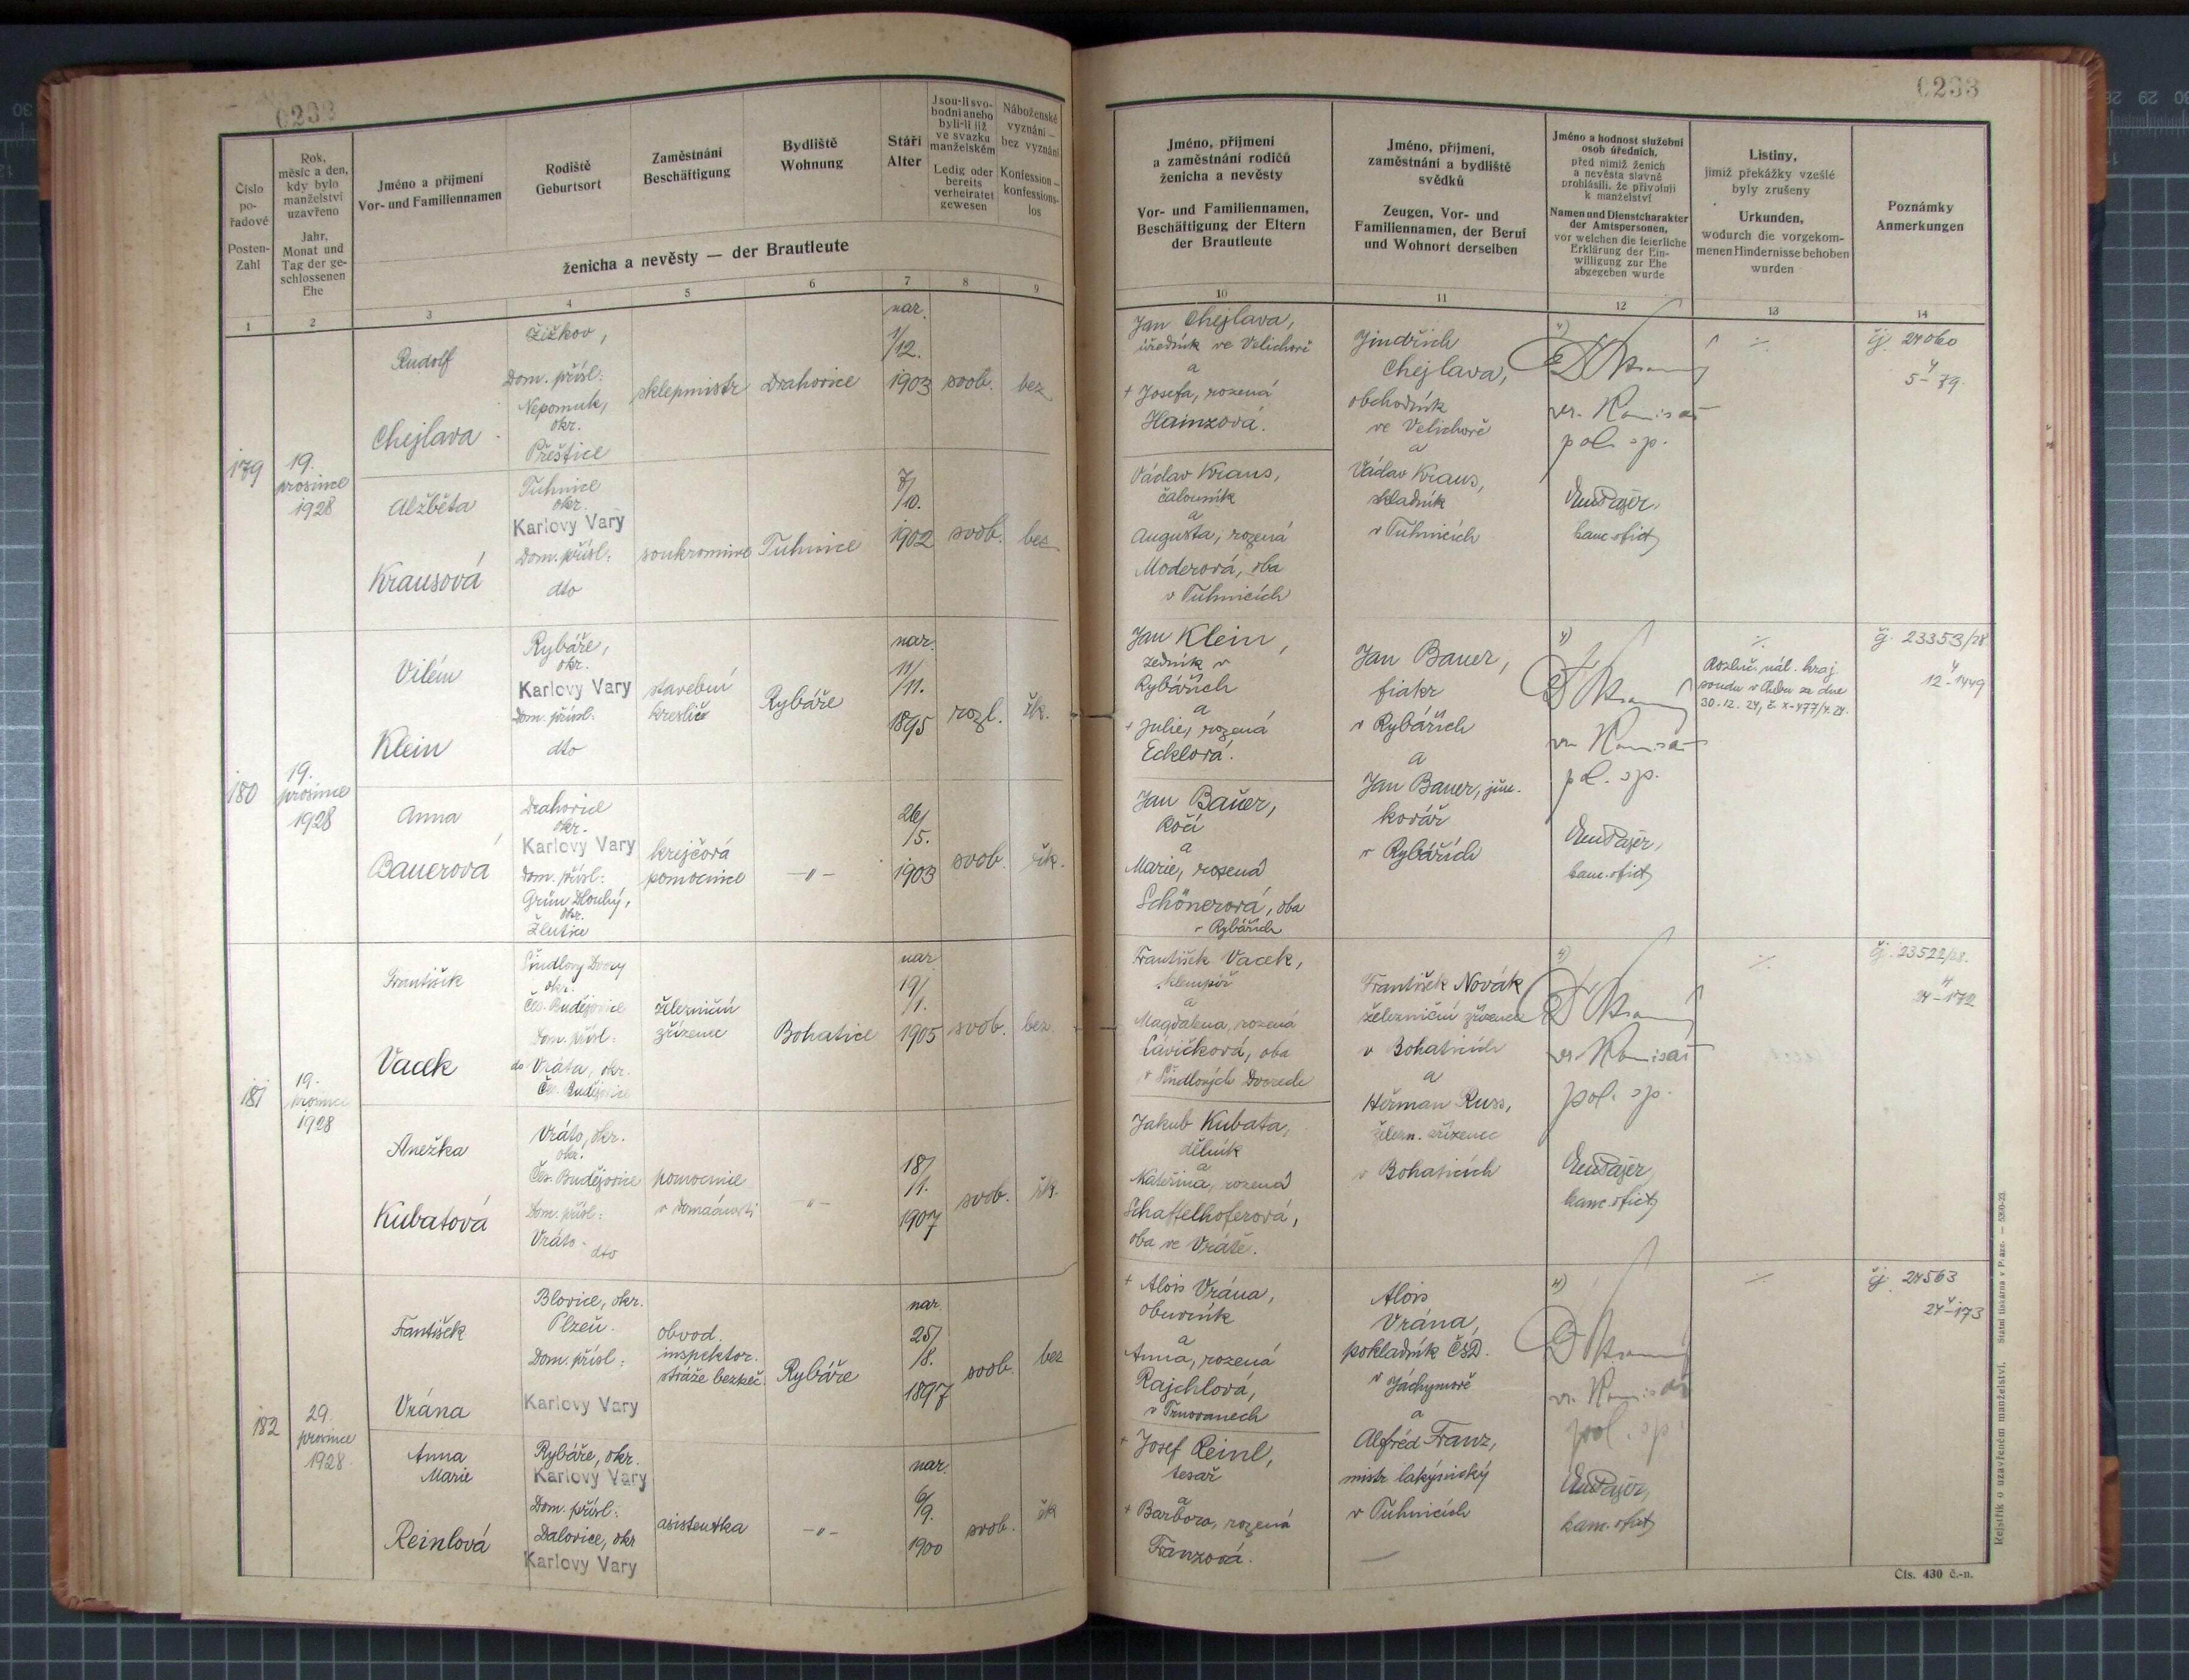 0233
Číslo
po-
řadové
Posten-
Zahl
Rok,
měsíc a den,
kdy bylo
manželství
uzavřeno
Jahr,
Monat und
Tag der ge-
schlossenen
Ehe
Jméno a příjmení
Vor- und Familiennamen
Rodiště
Geburtsort
Zaměstnání
Beschäftigung
Bydliště
Wohnung
Stáří
Alter
Jsou-li svo-
bodni anebo
byli-li již
ve svazku
manželském
Ledig oder
bereits
verheiratet
gewesen
Náboženské
vyznání —
bez vyznání
Konfession —
konfessions-
los
ženicha a nevěsty — der Brautleute
1
2
3
4
5
6
7
8
9
179
19.
prosince
1928
Rudolf
Chejlava
Žižkov,
Dom. přísl:
Nepomuk,
okr.
Přeštice
sklepmistr
Drahovice
nar.
1/12.
1903
svob.
bez
Alžběta
Krausová
Tuhnice
okr.
Karlovy Vary
Dom. přísl:
dto
soukromnice
Tuhnice
7/10.
1902
svob.
bez
180
19.
prosince
1928
Vilém
Klein
Rybáře,
okr.
Karlovy Vary
Dom. přísl:
dto
stavební
kreslič
Rybáře
nar.
11/11.
1895
rozl.
řk.
Anna
Bauerová
Drahovice
okr.
Karlovy Vary
Dom. přísl:
Grün Dlouhý,
okr.
Žlutice
krejčová
pomocnice
—"—
26/5.
1903
svob.
řk.
181
19.
prosince
1928
František
Vacek
Šindlovy Dvory
okr.
Čes. Budějovice
Dom. přísl:
do Vráta, okr.
Čes. Budějovice
železniční
zřízenec
Bohatice
nar
19/1.
1905
svob.
bez
Anežka
Kubatová
Vráto, okr.
okr.
Čes. Budějovice
Dom. přísl:
Vráto - dto
pomocnice
v domácnosti
—"—
18/1.
1907
svob.
řk.
182
29.
prosince
1928
František
Vrána
Blovice, okr.
Plzeň.
Dom. přísl:
Karlovy Vary
obvod.
inspektor.
stráže bezpeč.
Rybáře
nar.
25/8.
1897
svob.
bez
Anna
Marie
Reinlová
Rybáře, okr.
Karlovy Vary
Dom. přísl:
Dalovice, okr
Karlovy Vary
asistentka
—"—
nar.
6/9.
1900
svob.
řk
0233
Jméno, příjmení
a zaměstnání rodičů
ženicha a nevěsty
Vor- und Familiennamen,
Beschäftigung der Eltern
der Brautleute
Jméno, příjmení,
zaměstnání a bydliště
svědků
Zeugen, Vor- und
Familiennamen, der Beruf
und Wohnort derselben
Jméno a hodnost služební
osob úředních,
před nimiž ženich
a nevěsta slavně
prohlásili, že přivolují
k manželství
Namen und Dienstcharakter
der Amtspersonen,
vor welchen die feierliche
Erklärung der Ein-
willigung zur Ehe
abgegeben wurde
Listiny,
jimiž překážky vzešlé
byly zrušeny
Urkunden,
wodurch die vorgekom-
menen Hindernisse behoben
wurden
Poznámky
Anmerkungen
10
11
12
13
14
Jan Chejlava,
úředník ve Velichově
a
+ Josefa, rozená
Hainzová.
Václav Kraus,
čalouník
a
Augusta, rozená
Moderová, oba
v Tuhnicích
Jindřich
Chejlava,
obchodník
ve Velichově
a
Václav Kraus,
skladník
v Tuhnicích
vr. Komisař
pol. sp.
kanc. ofic
čj. 24060
5-79.
Jan Klein,
zedník v
Rybářích
a
+ Julie, rozená
Ecklová.
Jan Bauer,
kočí
a
Marie, rozená
Schönerová, oba
v Rybářích
Jan Bauer,
fiakr
v Rybářích
a
Jan Bauer, jun.
kovář
v Rybářích
vr. Komisař
pol. sp.
kanc. ofic
Rozluč. nál. kraj
soudu v Chebu ze dne
30.12.24, č.
čj. 23353/28
12-1449
František Vacek,
klempíř
a
Magdalena, rozená
Lávičková, oba
v Šindlových Dvorech
Jakub Kubata,
dělník
a
Kateřina, rozená
Schaffelhoferová,
oba ve Vrátě.
František Novák
železniční zřízenec
v Bohaticích
a
Heřman Russ,
želézn. zřízenec
v Bohaticích
vr. Komisař
pol. sp.
kanc. ofic
čj. 23522/28.
+ Alois Vrána,
obuvník
a
Anna, rozená
Rajchlová,
v Trnovanech
+ Josef Reinl,
tesař
a
+ Barbora, rozená
Franzová.
Alois
Vrána,
pokladník ČSD.
v Jáchymově
a
Alfréd Franz,
mistr lakýrnický
v Tuhnicích
vr. Komisař
pol. sp.
kanc. ofic
čj. 24563
24-173
Rejstřík o uzavřeném manželství. Státní tiskárna v Praze. — 5390-23.
Čís. 430 č.-n.